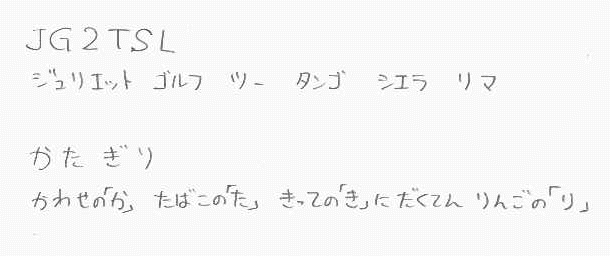 JG2TSL
ジュリエット ゴルフ ツー タンゴ シエラ リマ
かたぎり
かわせの「か」 たばこの「た」 きっての「き」にだくてん りんごの「り」